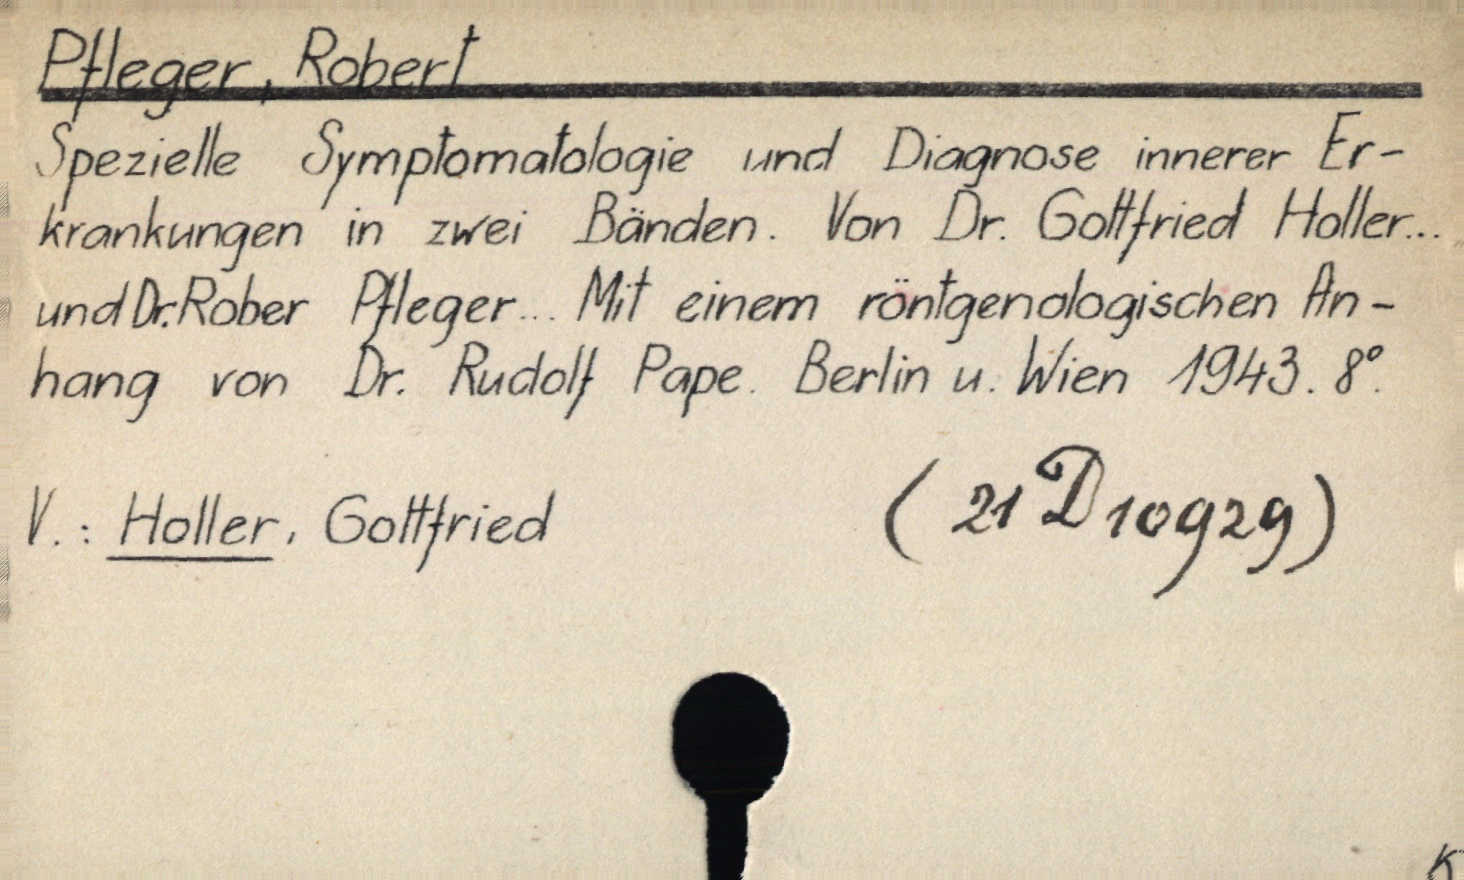 Pfleger, Robert
Spezielle Symptomatologie und Diagnose innerer Er-
krankungen in zwei Bänden. Von Dr. Gottfried Holler...
und Dr. Rober Pfleger... Mit einem röntgenologischen An-
hang von Dr. Rudolf Pape. Berlin u. Wien 1943. 8°.
V.: Holler, Gottfried
(21 D 10929)
K